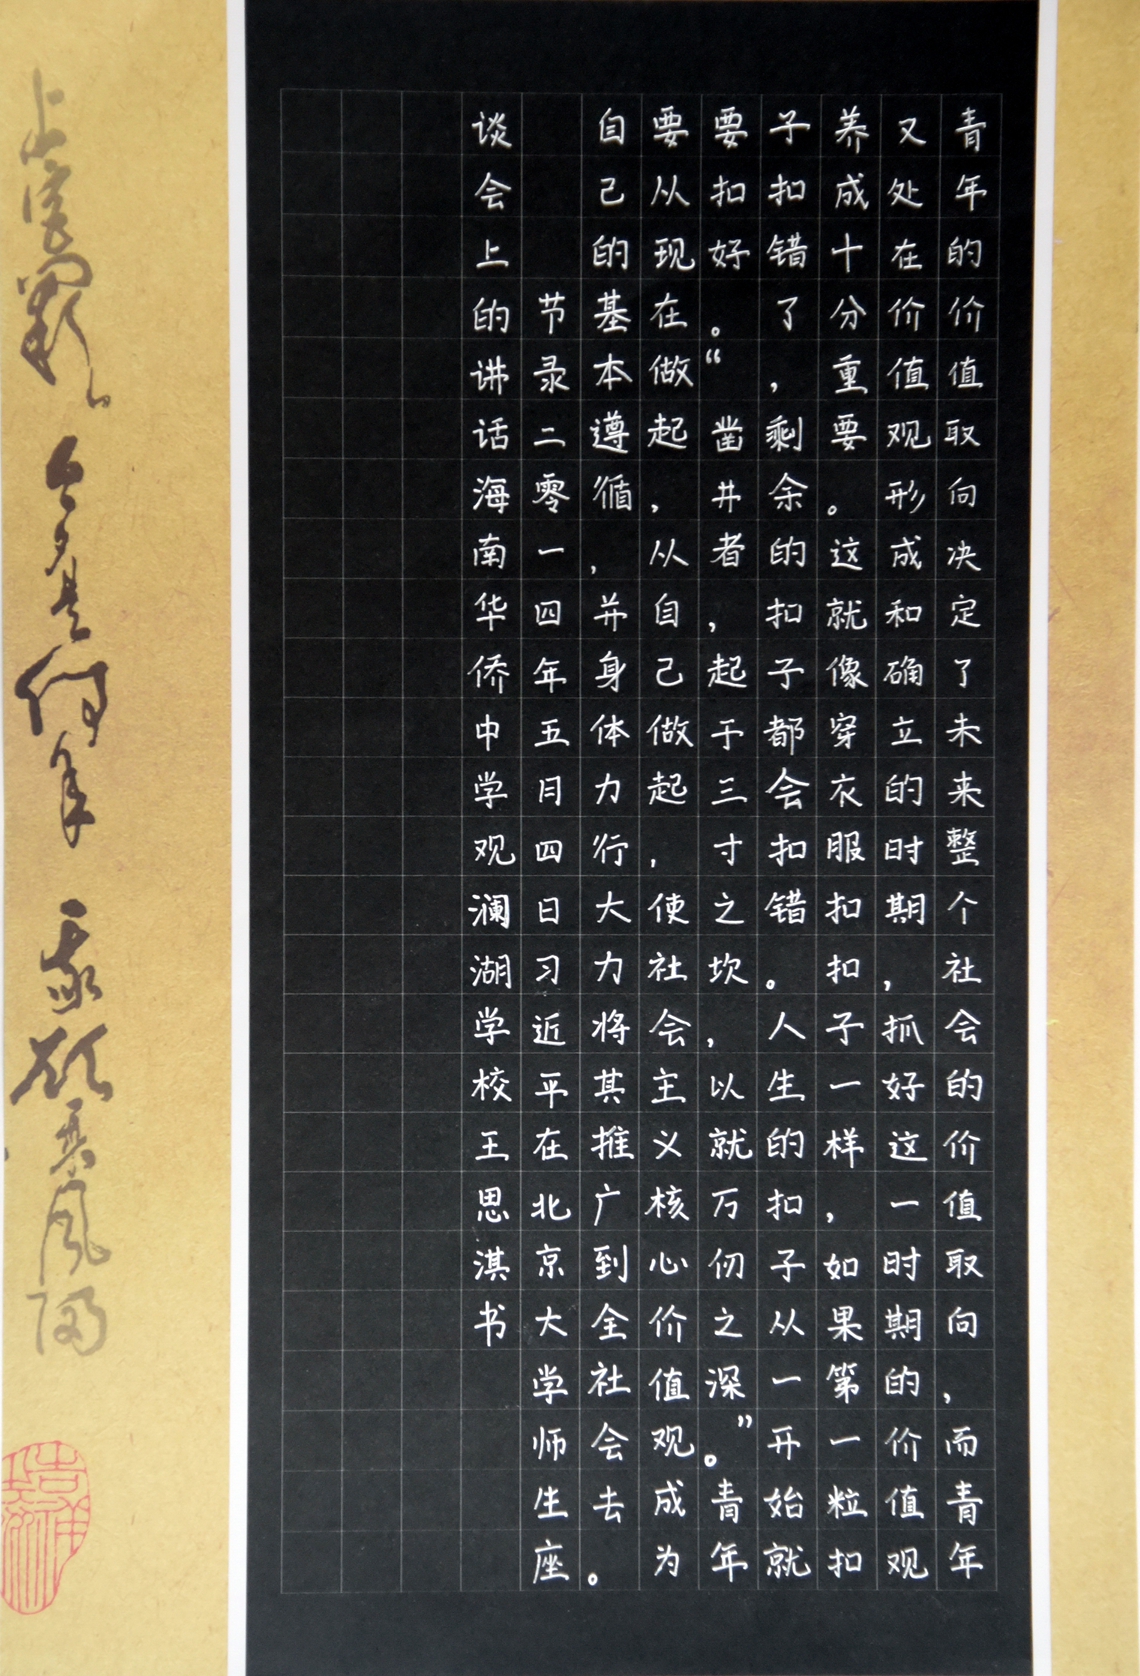 青年的价值取向决定了未来整个社会的价值取向，而青年
又处在价值观形成和确立的时期，抓好这一时期的价值观
养成十分重要。这就像穿衣服扣扣子一样，如果第一粒扣
子扣错了，剩余的扣子都会扣错。人生的扣子从一开始就
要扣好。“凿井者，起于三寸之坎，以就万仞之深。”青年
要从现在做起，从自己做起，使社会主义核心价值观成为
自己的基本遵循，并身体力行大力将其推广到全社会去。
节录二零一四年五月四日习近平在北京大学师生座
谈会上的讲话海南华侨中学观澜湖学校王思淇书